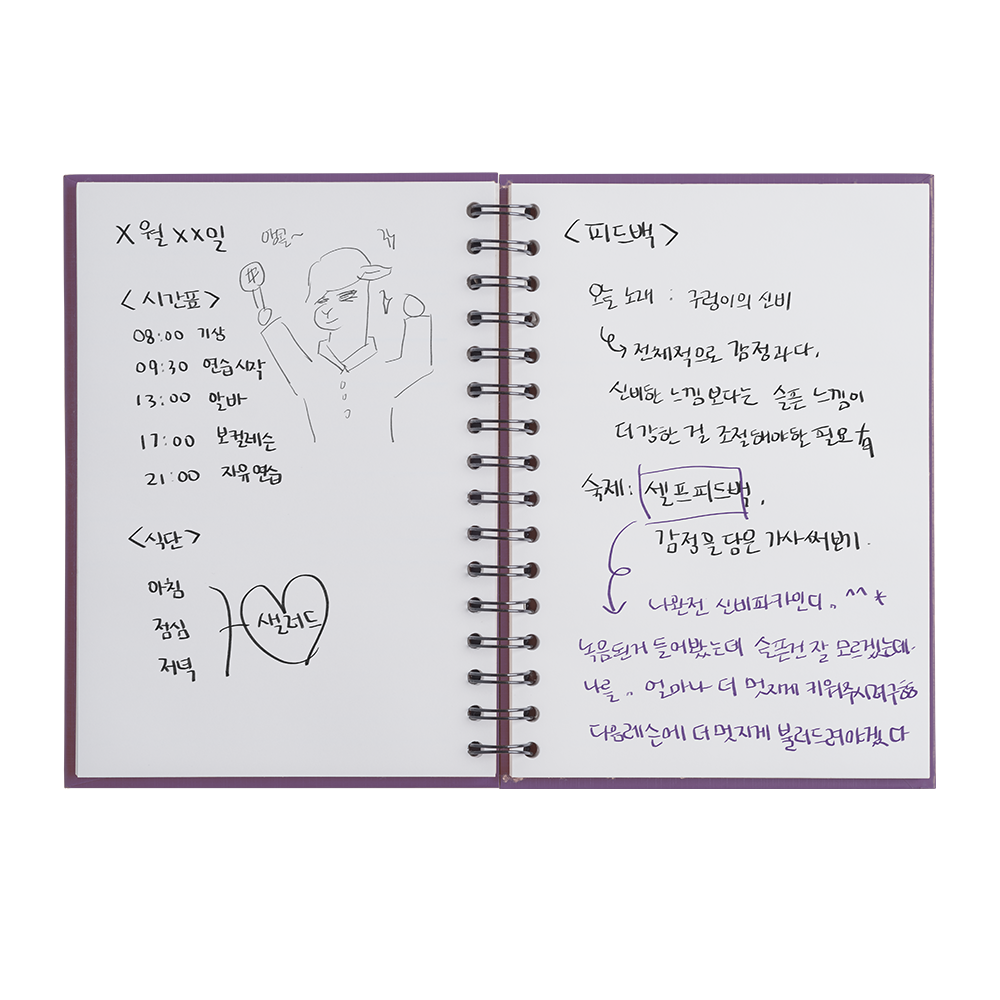 X월 XX일
앵콜~
<시간표>
08:00 기상
09:30 연습시작
13:00 알바
17:00 보컬레슨
21:00 자유연습
<식단>
아침
점심
저녁
샐러드
<피드백>
오늘 노래 : 구렁이의 신비
전체적으로 감정과다.
신비한 느낌보다는 슬픈 느낌이
더 강한 걸 조절해야할 필요有
숙제: 셀프피드백,
감정을 담은 가사써보기.
나완전 신비파카인디. ^^*
녹음된거 들어봤는데 슬픈건 잘 모르겠는데.
나를. 얼마나 더 멋지게 키워주시려구
다음레슨에 더 멋지게 불러드려야겠다